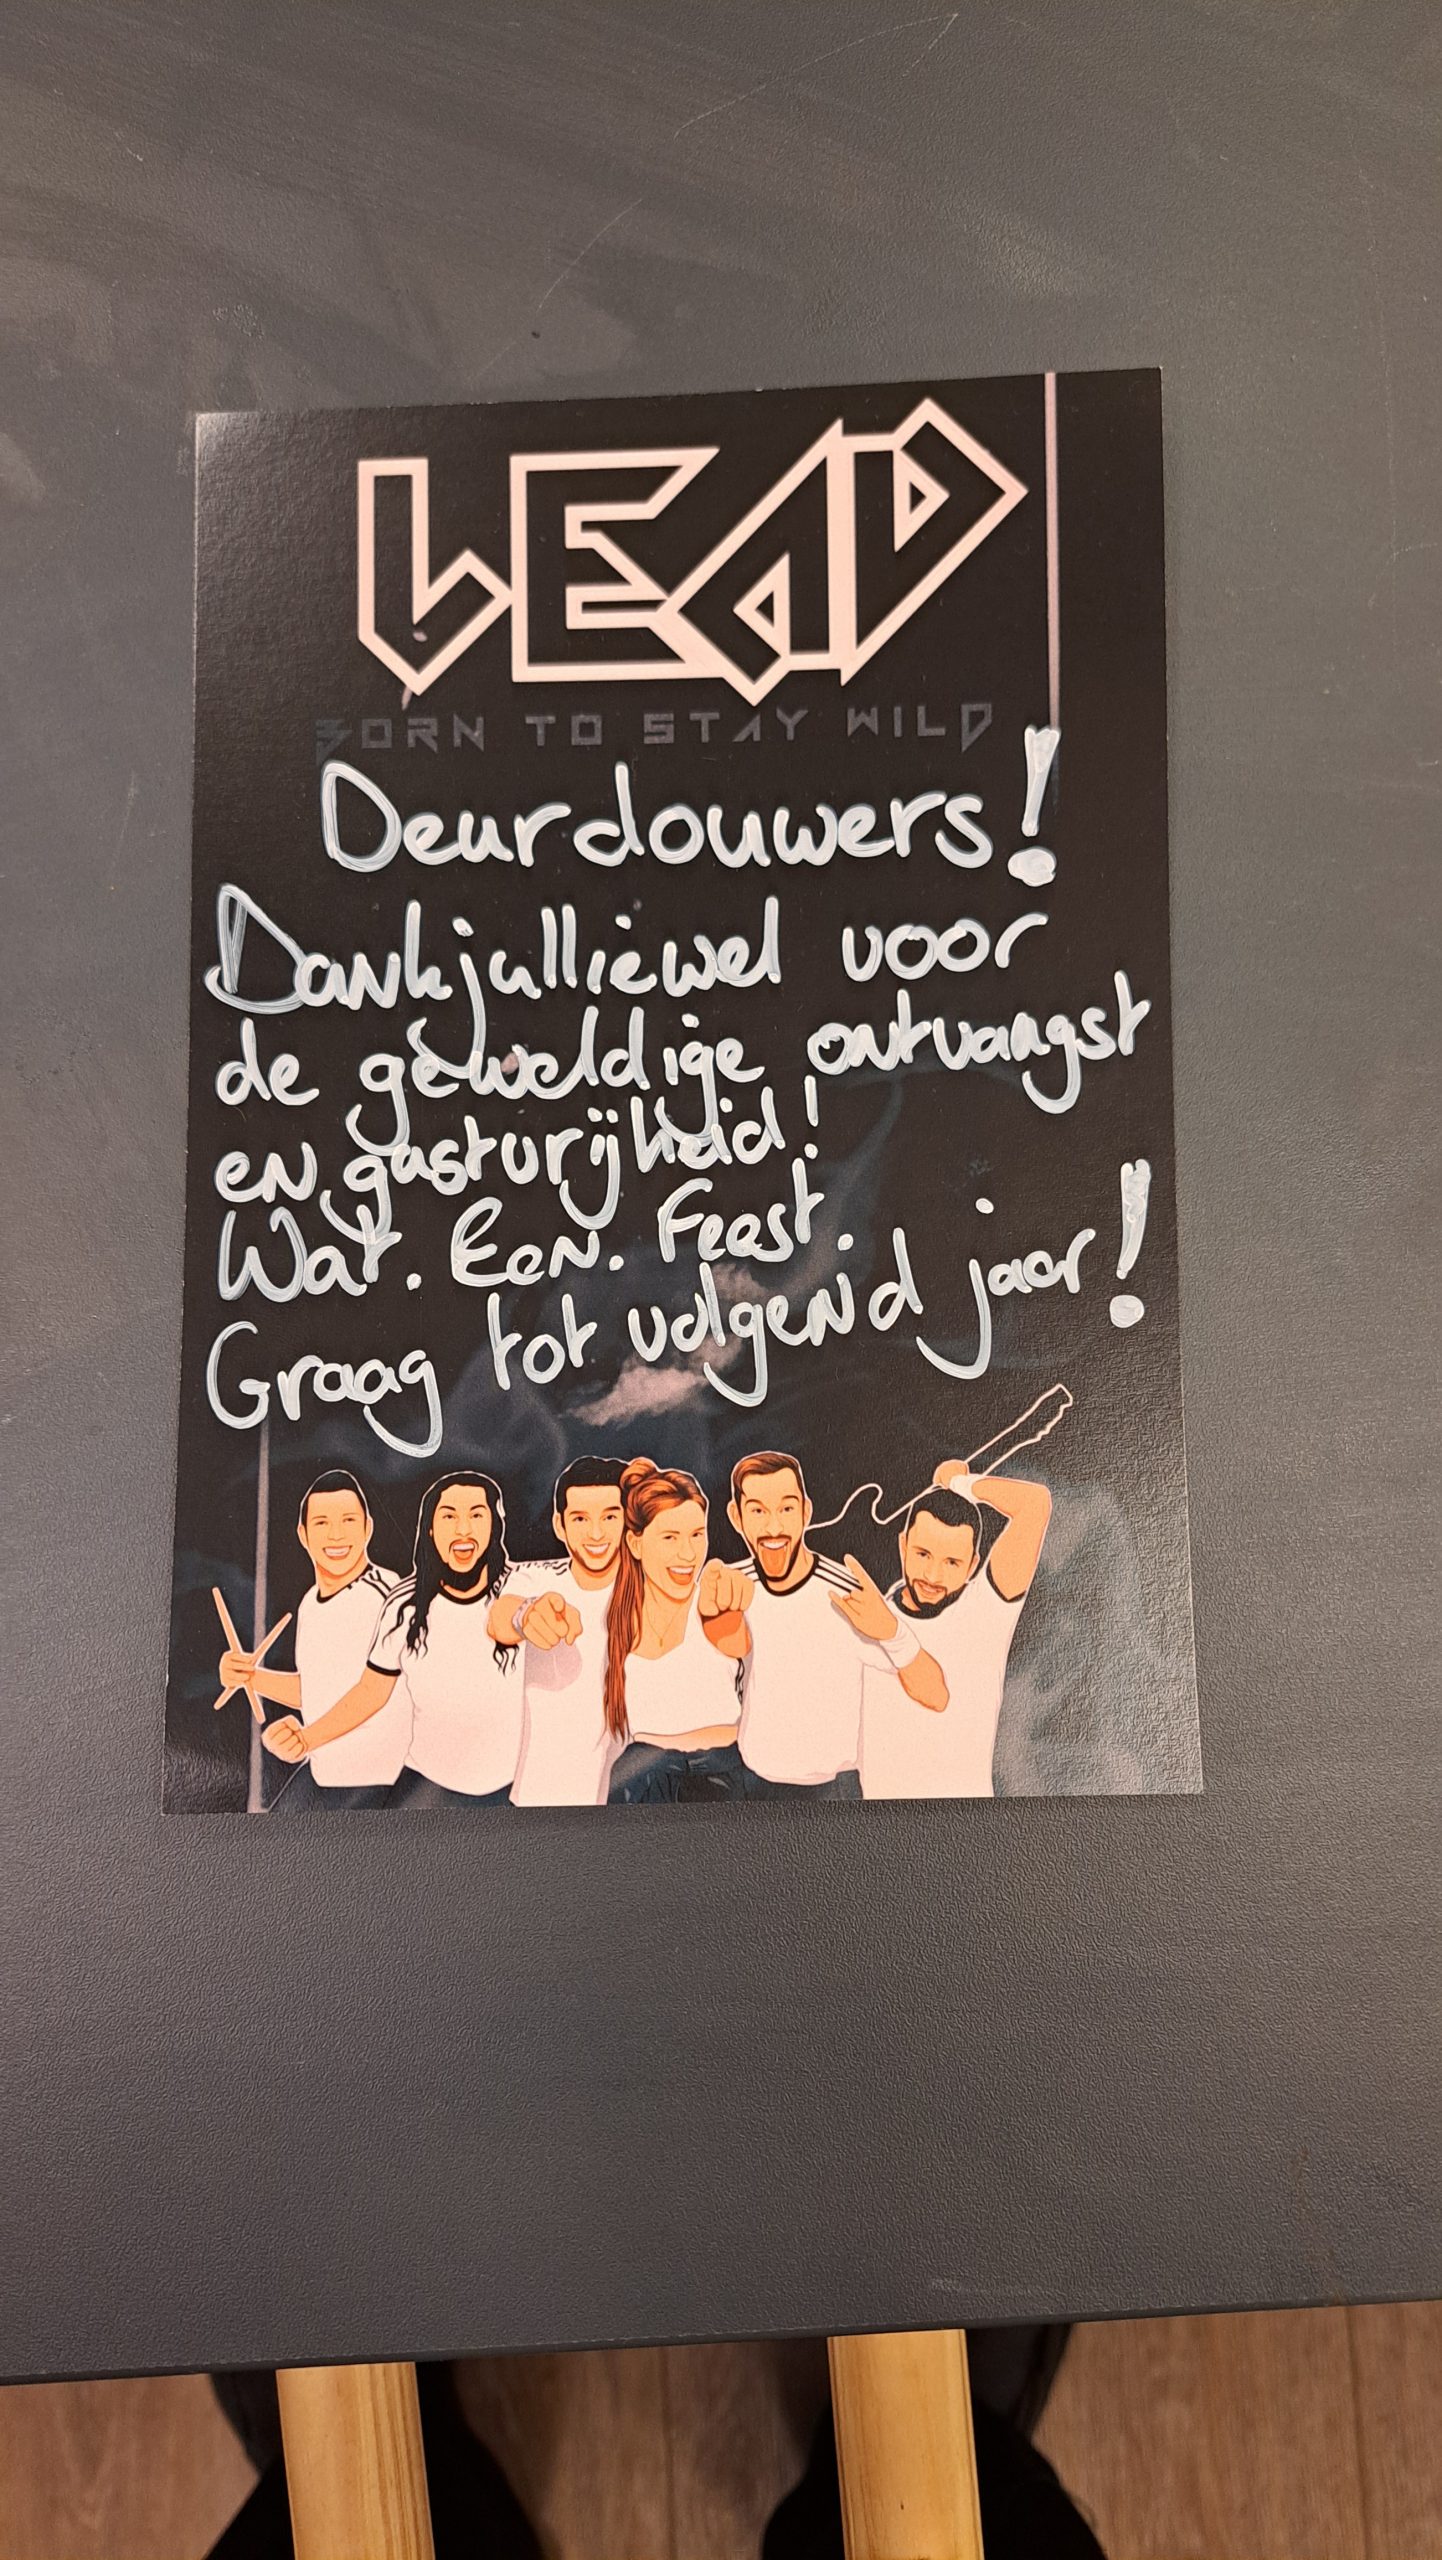 LEAD
BORN TO STAY WILD
Deurdouwers!
Dankjulliewel voor
de geweldige ontvangst
en gastvrijheid!
Wat. Een. Feest.
Graag tot volgend jaar!